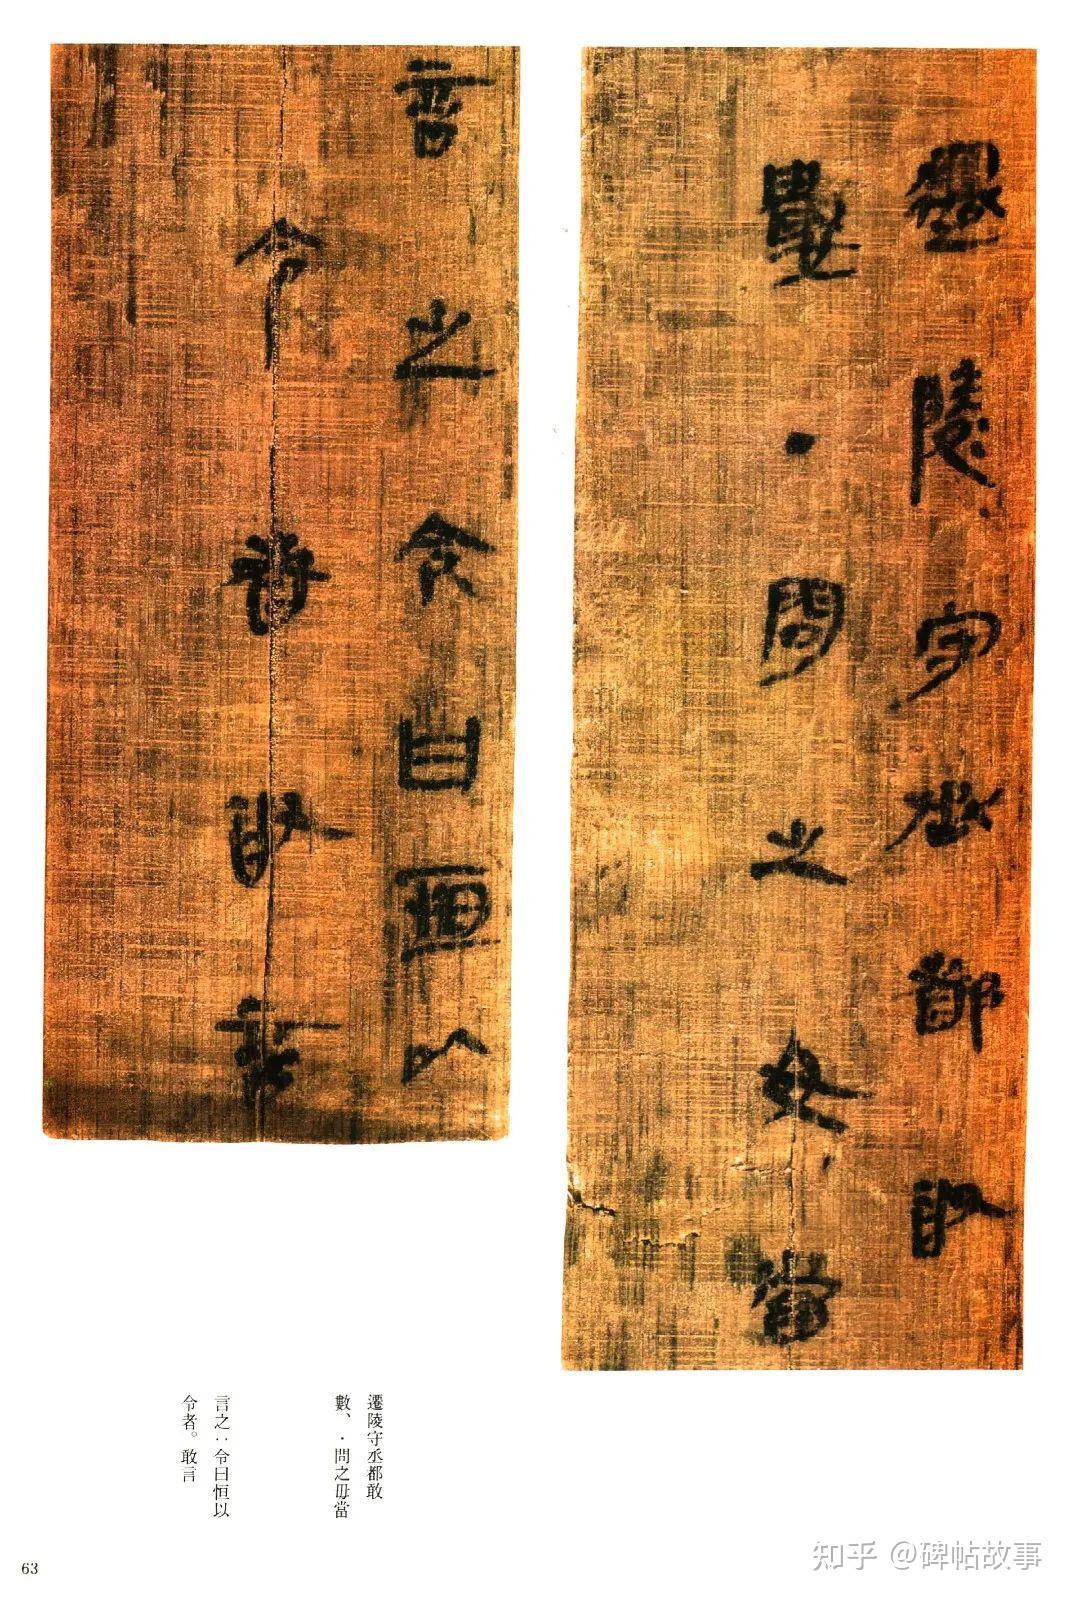 遷陵守丞都敢
數・問之毋當
言之令曰恒以
令者敢言
遷陵守丞都敢
數、・問之毋當
言之：令曰恒以
令者。敢言
63
知乎 @碑帖故事